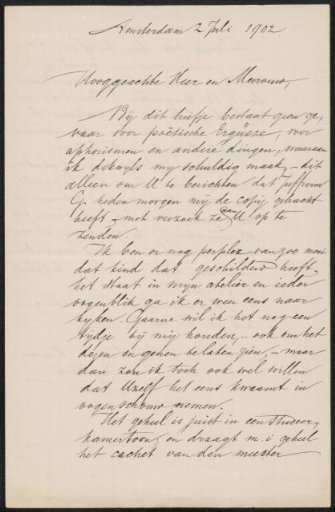 Amsterdam 2 Juli 1902.
Hooggeachte Heer en Mevrouw,
Bij dit briefje bestaat geen ge-
vaar voor poëtische Ergüsse, voor
aphorismen en andere dingen, waaraan
ik dikwijls mij schuldig maak, – dit
alleen om U te berichten dat Juffrouw
G. heden morgen mij de copij gebracht
heeft – met verzoek ze aan U op te
zenden.
Ik ben er nog perplex van zoo mooi
dat kind dat geschilderd heeft –
het staat in mijn atelier en ieder
oogenblik ga ik er weer eens naar
kijken. Gaarne wil ik het nog een
tijdje bij mij houden, – ook om het
dezen en genen te laten zien, – maar
dan zou ik toch ook wel willen
dat Uzelf het eens kwaamt in
oogenschouw nemen.
Het geheel is juist in een
kamertoon, en draagt m.i. geheel
het cachet van den meester